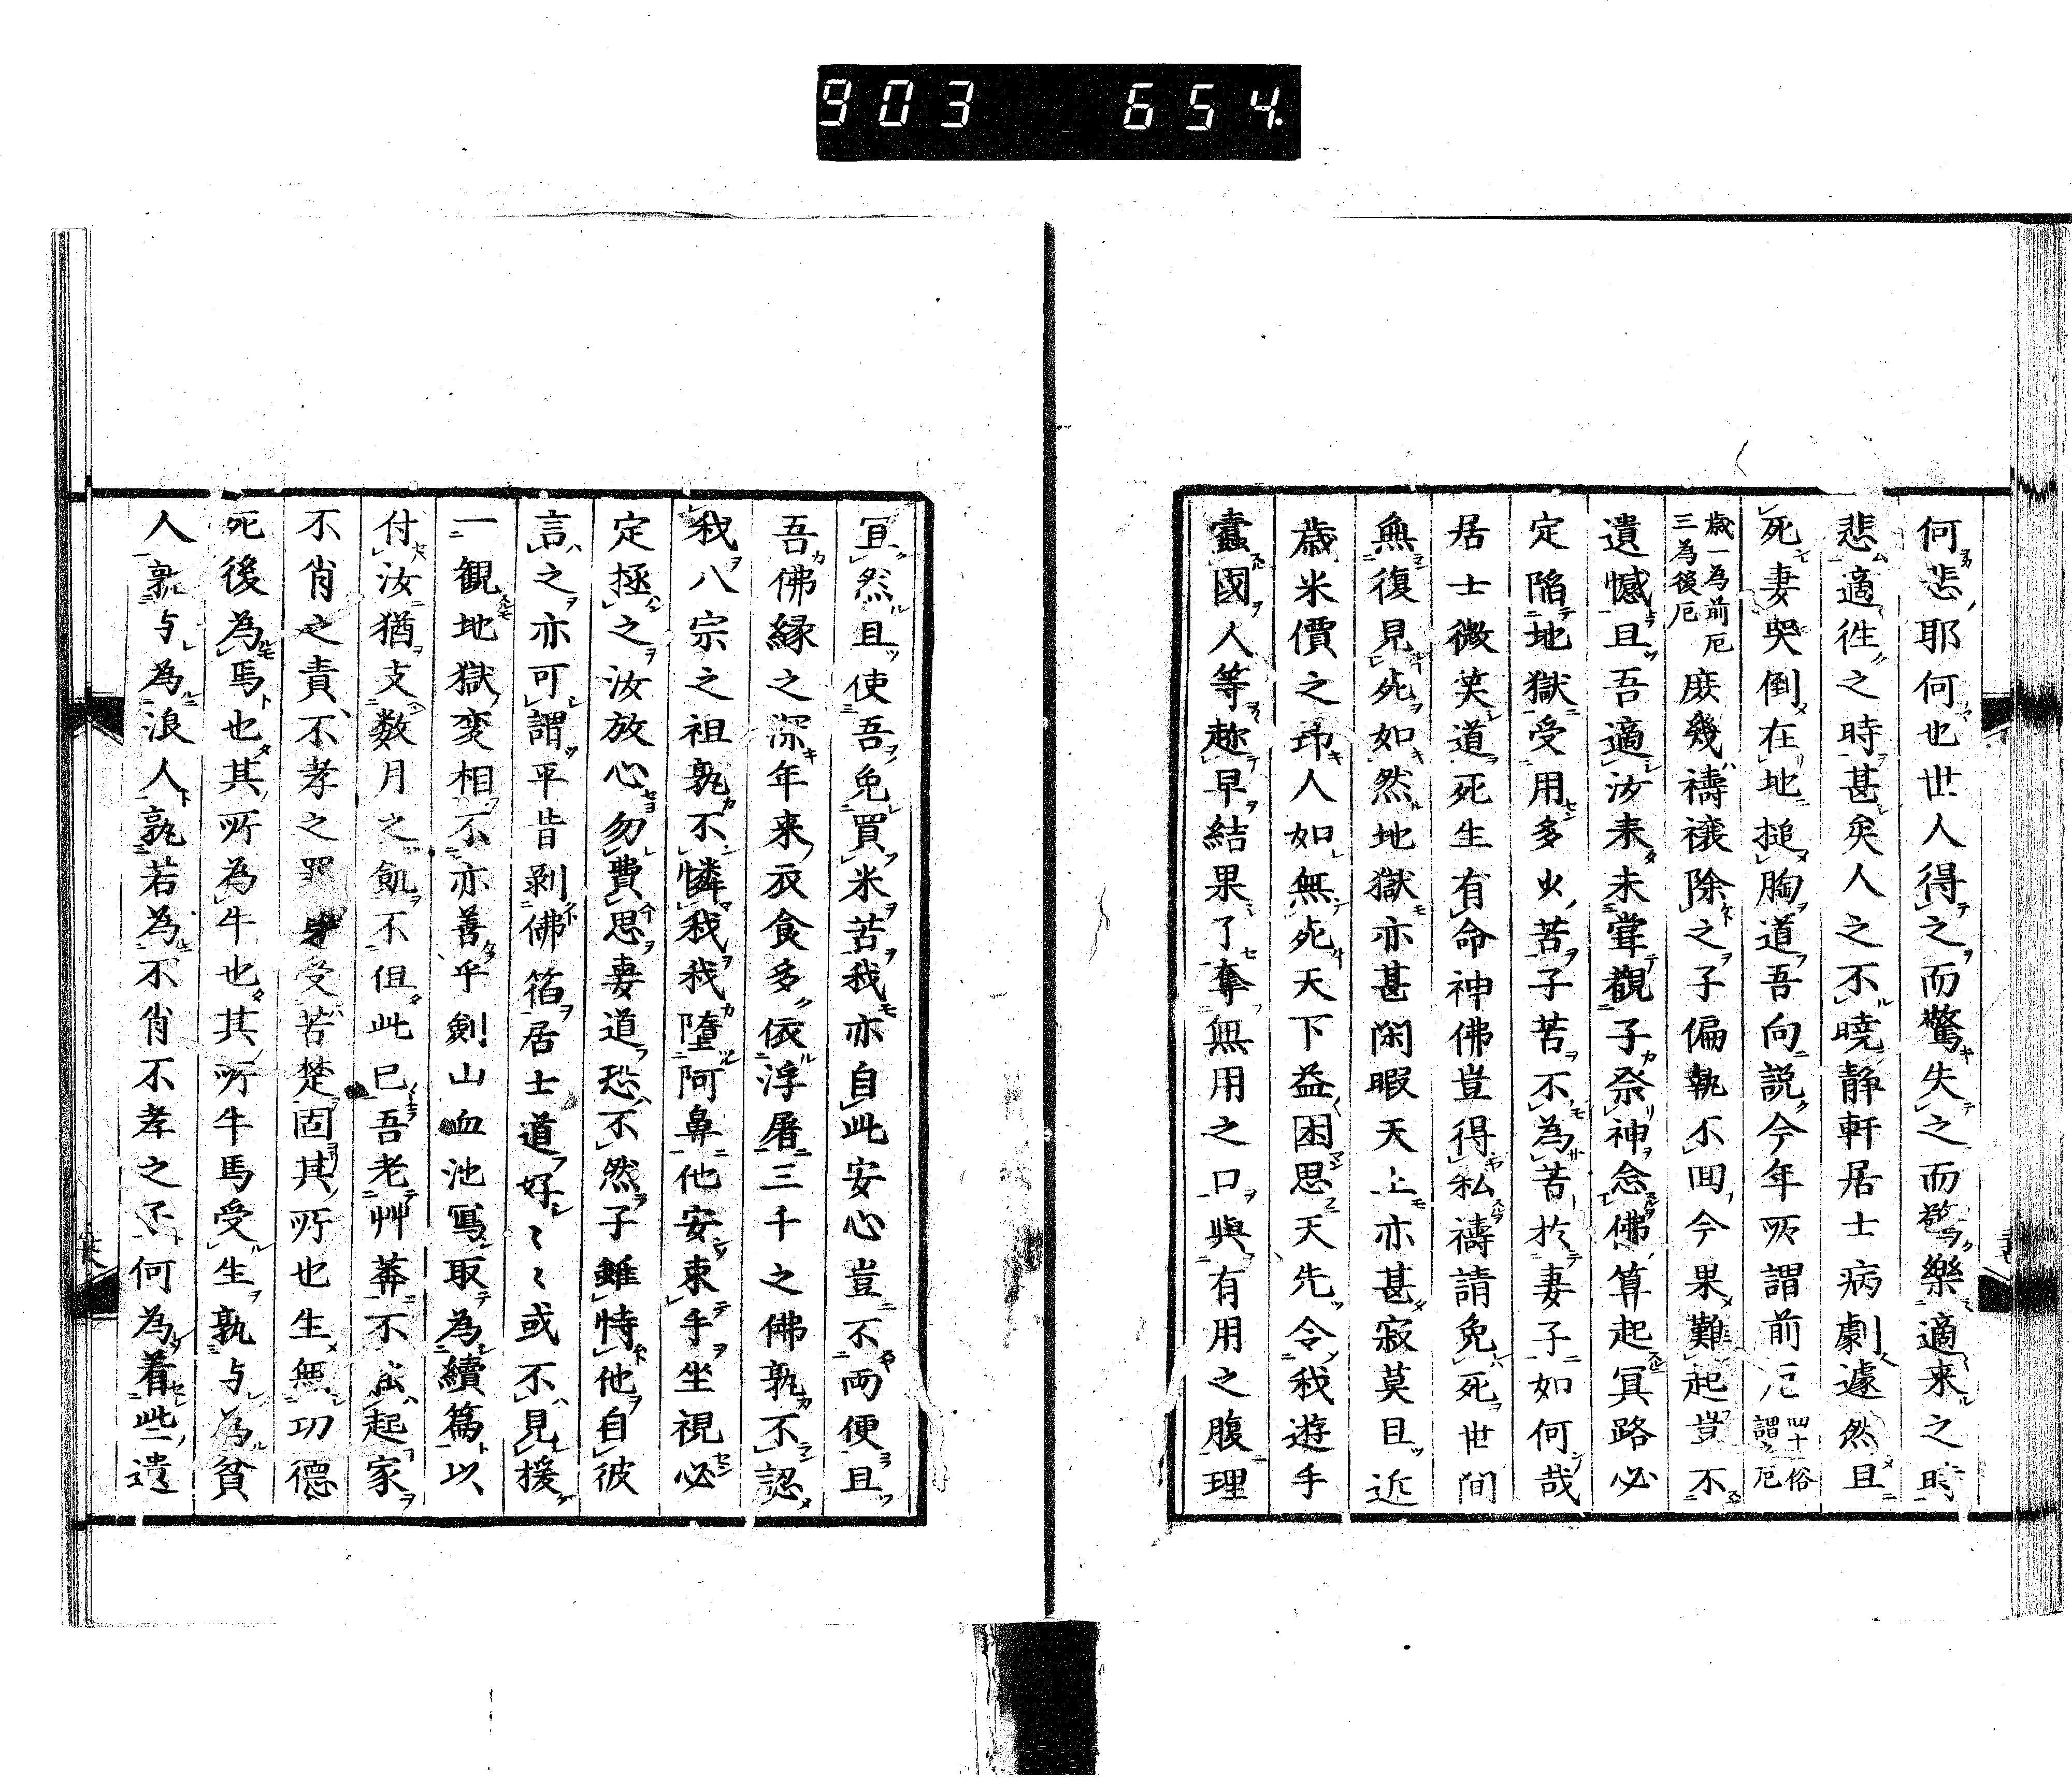 903 654
何悲耶何也世人得之而驚失之而愁樂適来之時
悲適往之時甚矣人之不曉静軒居士病劇遽然且
死妻哭倒在地搥胸道吾向説今年所謂前厄四十俗謂之厄
歳一為前厄三為後厄庶幾禱禳除之子偏執不回今果難起豈不
遺憾且吾適汝来未甞觀子祭神念佛算起冥路必
定陷地獄受用多少苦子苦不為苦於妻子如何哉
居士微笑道死生有命神佛豈得私禱請免死世間
無復見死如然地獄亦甚閑暇天上亦甚寂莫且近
歳米價之昂人如無死天下益困思天先令我遊手
蠹國人等趂早結果了奪無用之口與有用之腹理
宜然且使吾免買米苦我亦自此安心豈不両便且
吾佛縁之深年来衣食多依浮屠三千之佛孰不認
我八宗之祖孰不憐我我墮阿鼻他安束手坐視必
定拯之汝放心勿費思妻道恐不然子雖恃他自彼
言之亦可謂平昔剥佛箔居士道好〻〻或不見援
一觀地獄変相不亦善乎劍山血池寫取為續篇以
付汝猶支数月之飢不但此已吾老艸莽不出起家
不肖之責不孝之罪身受苦楚固其所也生無功德
死後為馬也其所為牛也其所牛馬受生孰与為貧
人孰与為浪人孰若為不肖不孝之子何為着此遺